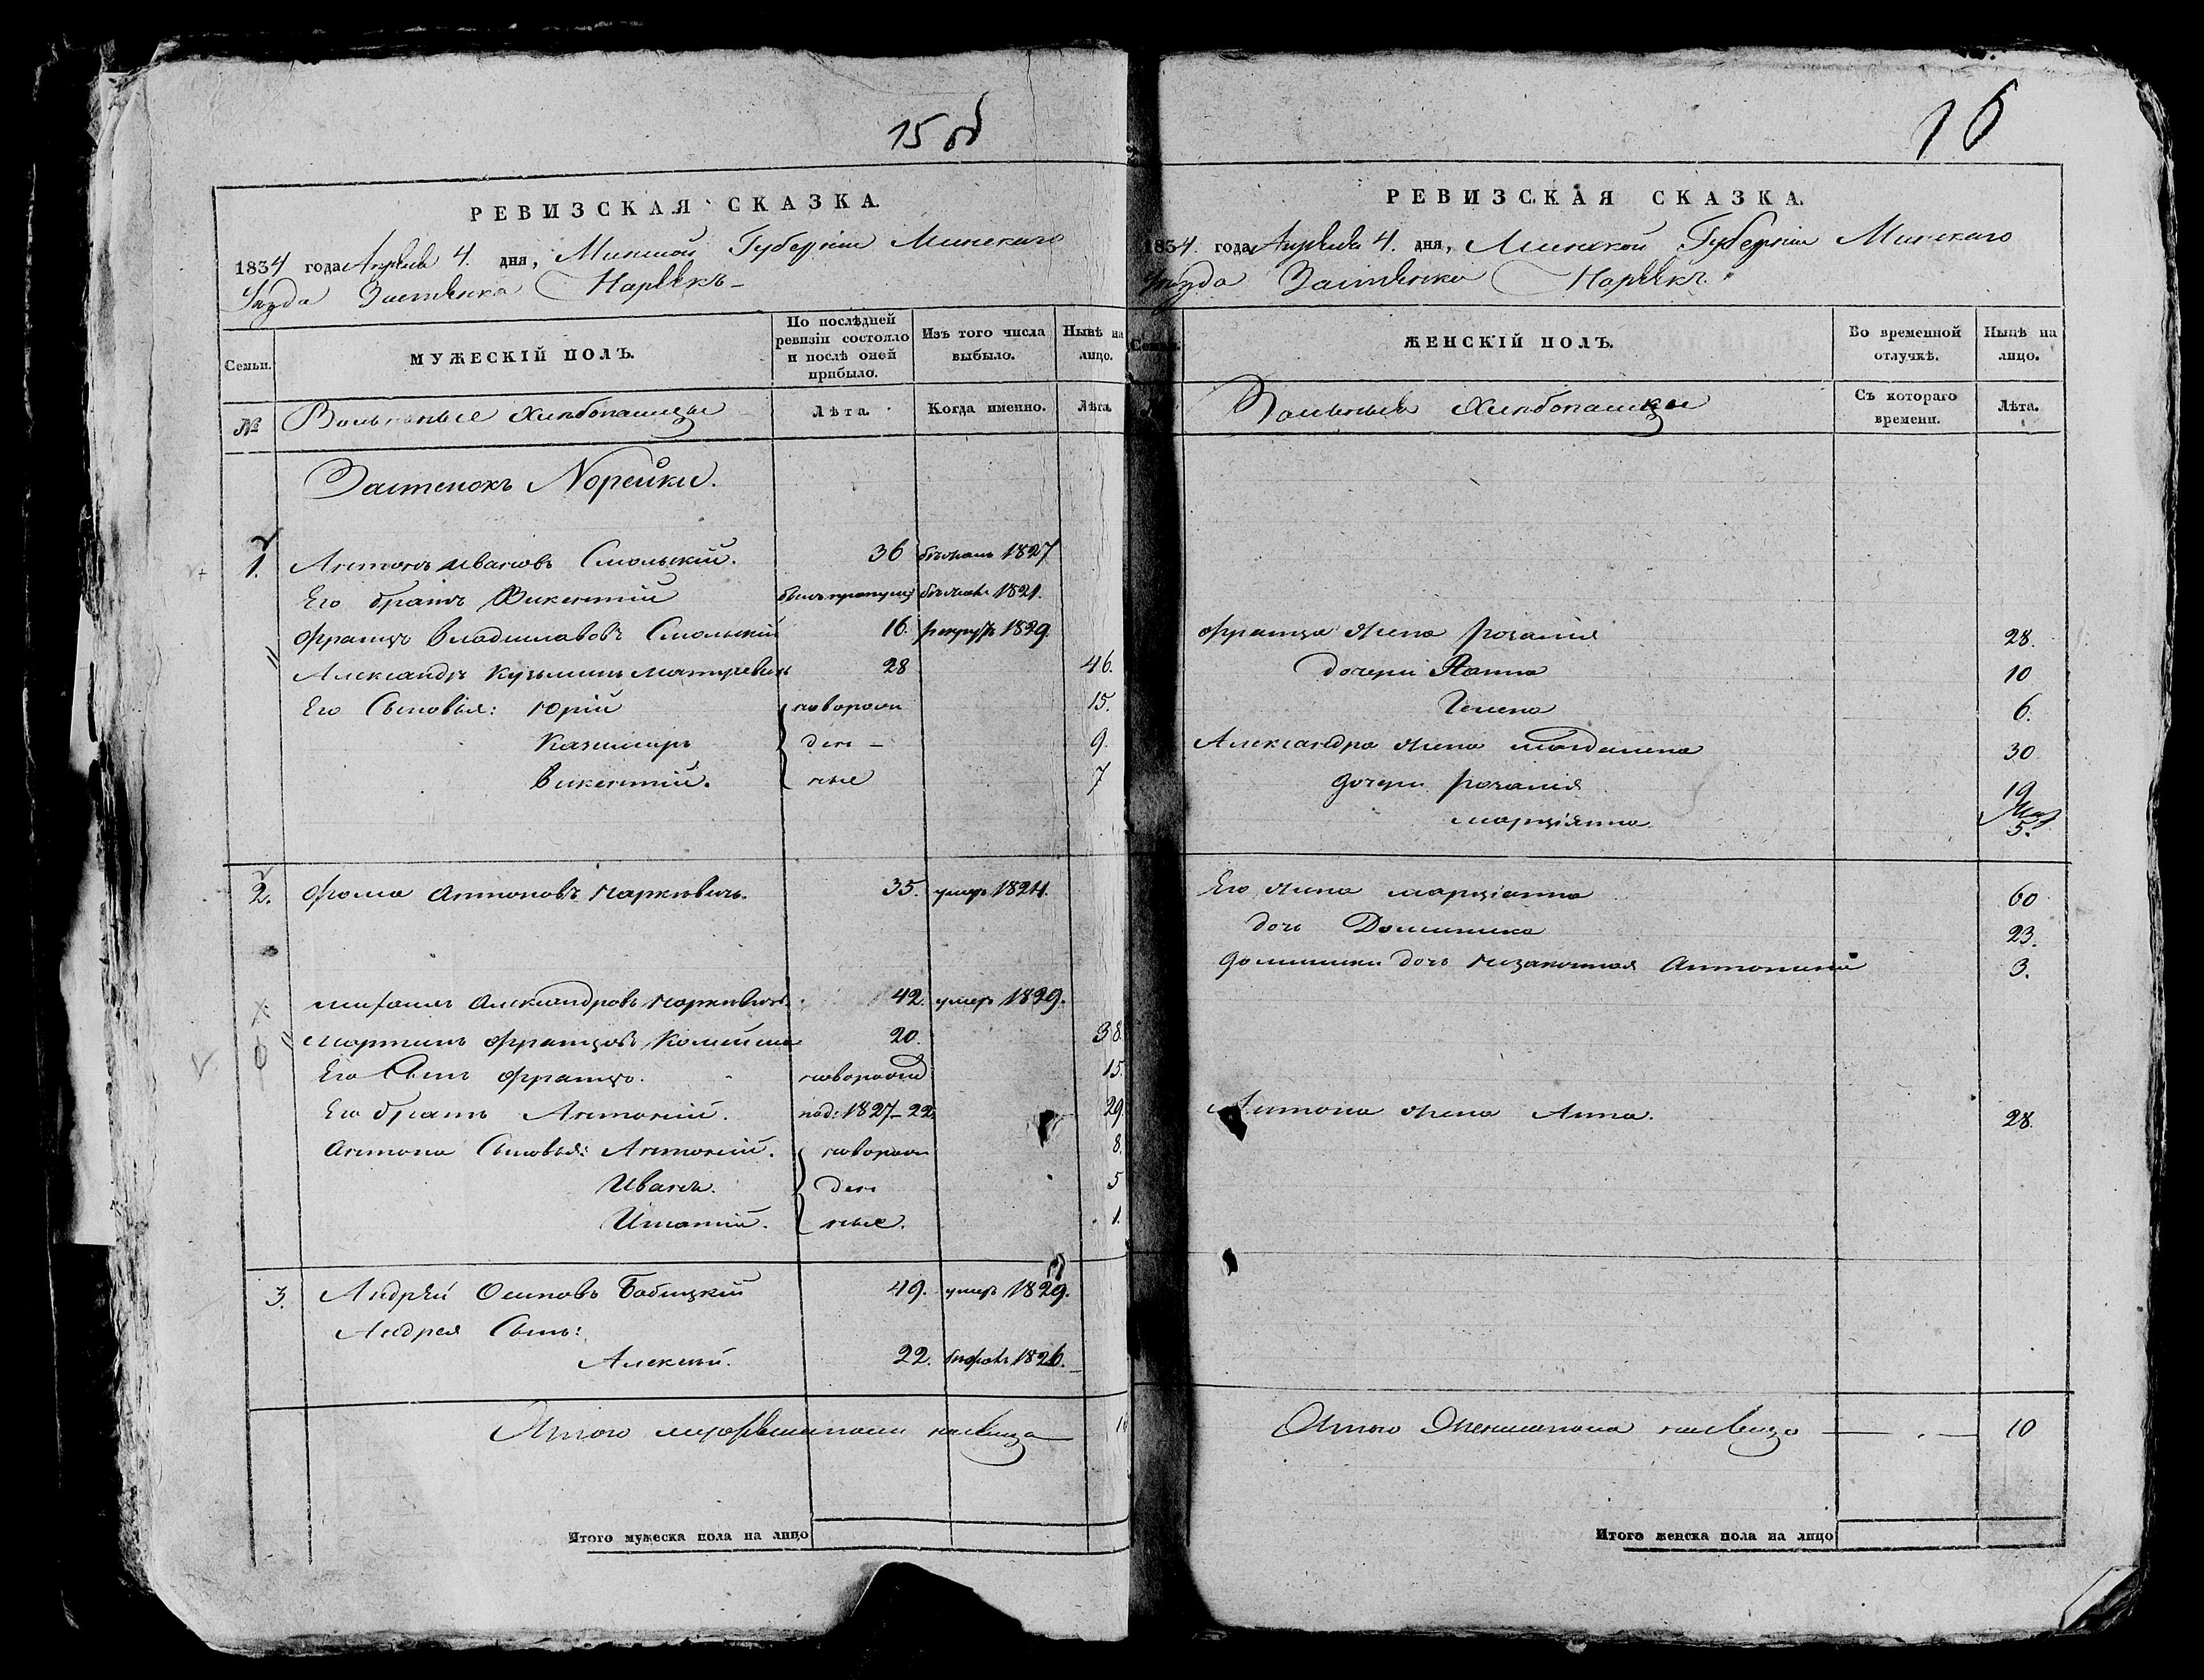 15 об
РЕВИЗСКАЯ СКАЗКА.
1834 года Апреля 4. дня, Минской Губернии Минскаго
Уезда Застенка Нареекъ
Семьи.
МУЖЕСКІЙ ПОЛЪ.
По послѣдней ревизіи состояло и послѣ оней прибыло.
Изъ того числа выбыло.
Нынѣ на лицо.
№
Вольныые Хлебопашцы
Лѣта.
Когда именно.
Лѣта.
Застенокъ Норейки.
1. Антонъ Ивановъ Смольскій. 36 бежалъ 1827
Его братъ Викентій 1821.
Францъ Владиславовъ Смольскій 16. рекрутъ 1829
Александръ Кузьминъ Матусевичъ 28 46.
Его Сыновья: Юрій новорож 15.
Казимиръ ден - 9.
Викентій. ные 7
2. Фома Антоновъ Наркевичъ. 35. умеръ 1824.
Михаилъ Александровъ Наркевичъ. 42. умеръ 1829.
Мартинъ Францовъ 20. 38.
Его Сынъ Францъ. новорож 15.
Его братъ Антоній. 1827 - 22 29.
Антона Сыновья: Антоній. новорож 8.
Иванъ. ден 5
Игнатій. ные. 1.
3. Андрей Осиповъ Бабицкій 49. умеръ 1829.
Андрея Сынъ:
Алексей. 22. 1826.
Итого мужеска пола налицо
Итого мужеска пола на лицо
16
РЕВИЗСКАЯ СКАЗКА.
1834. года Апреля 4. дня, Минской Губернии Минскаго
Уезда Застенка Нареекъ.
Семьи.
ЖЕНСКІЙ ПОЛЪ.
Во временной отлучкѣ.
Нынѣ на лицо.
Вольные Хлебопашцы
Съ котораго времени.
Лѣта.
Франца жена Розалія 28.
дочери Анна 10
Гелена 6.
Александра жена Магдалена 30
дочери Розалія 19
Марціянна 5.
Его жена Марціанна 60
дочь Доминика 23.
Доминики дочь незаконная Антонина 3.
Антона жена Анна. 28.
Итого Женска пола налицо 10
Итого женска пола на лицо